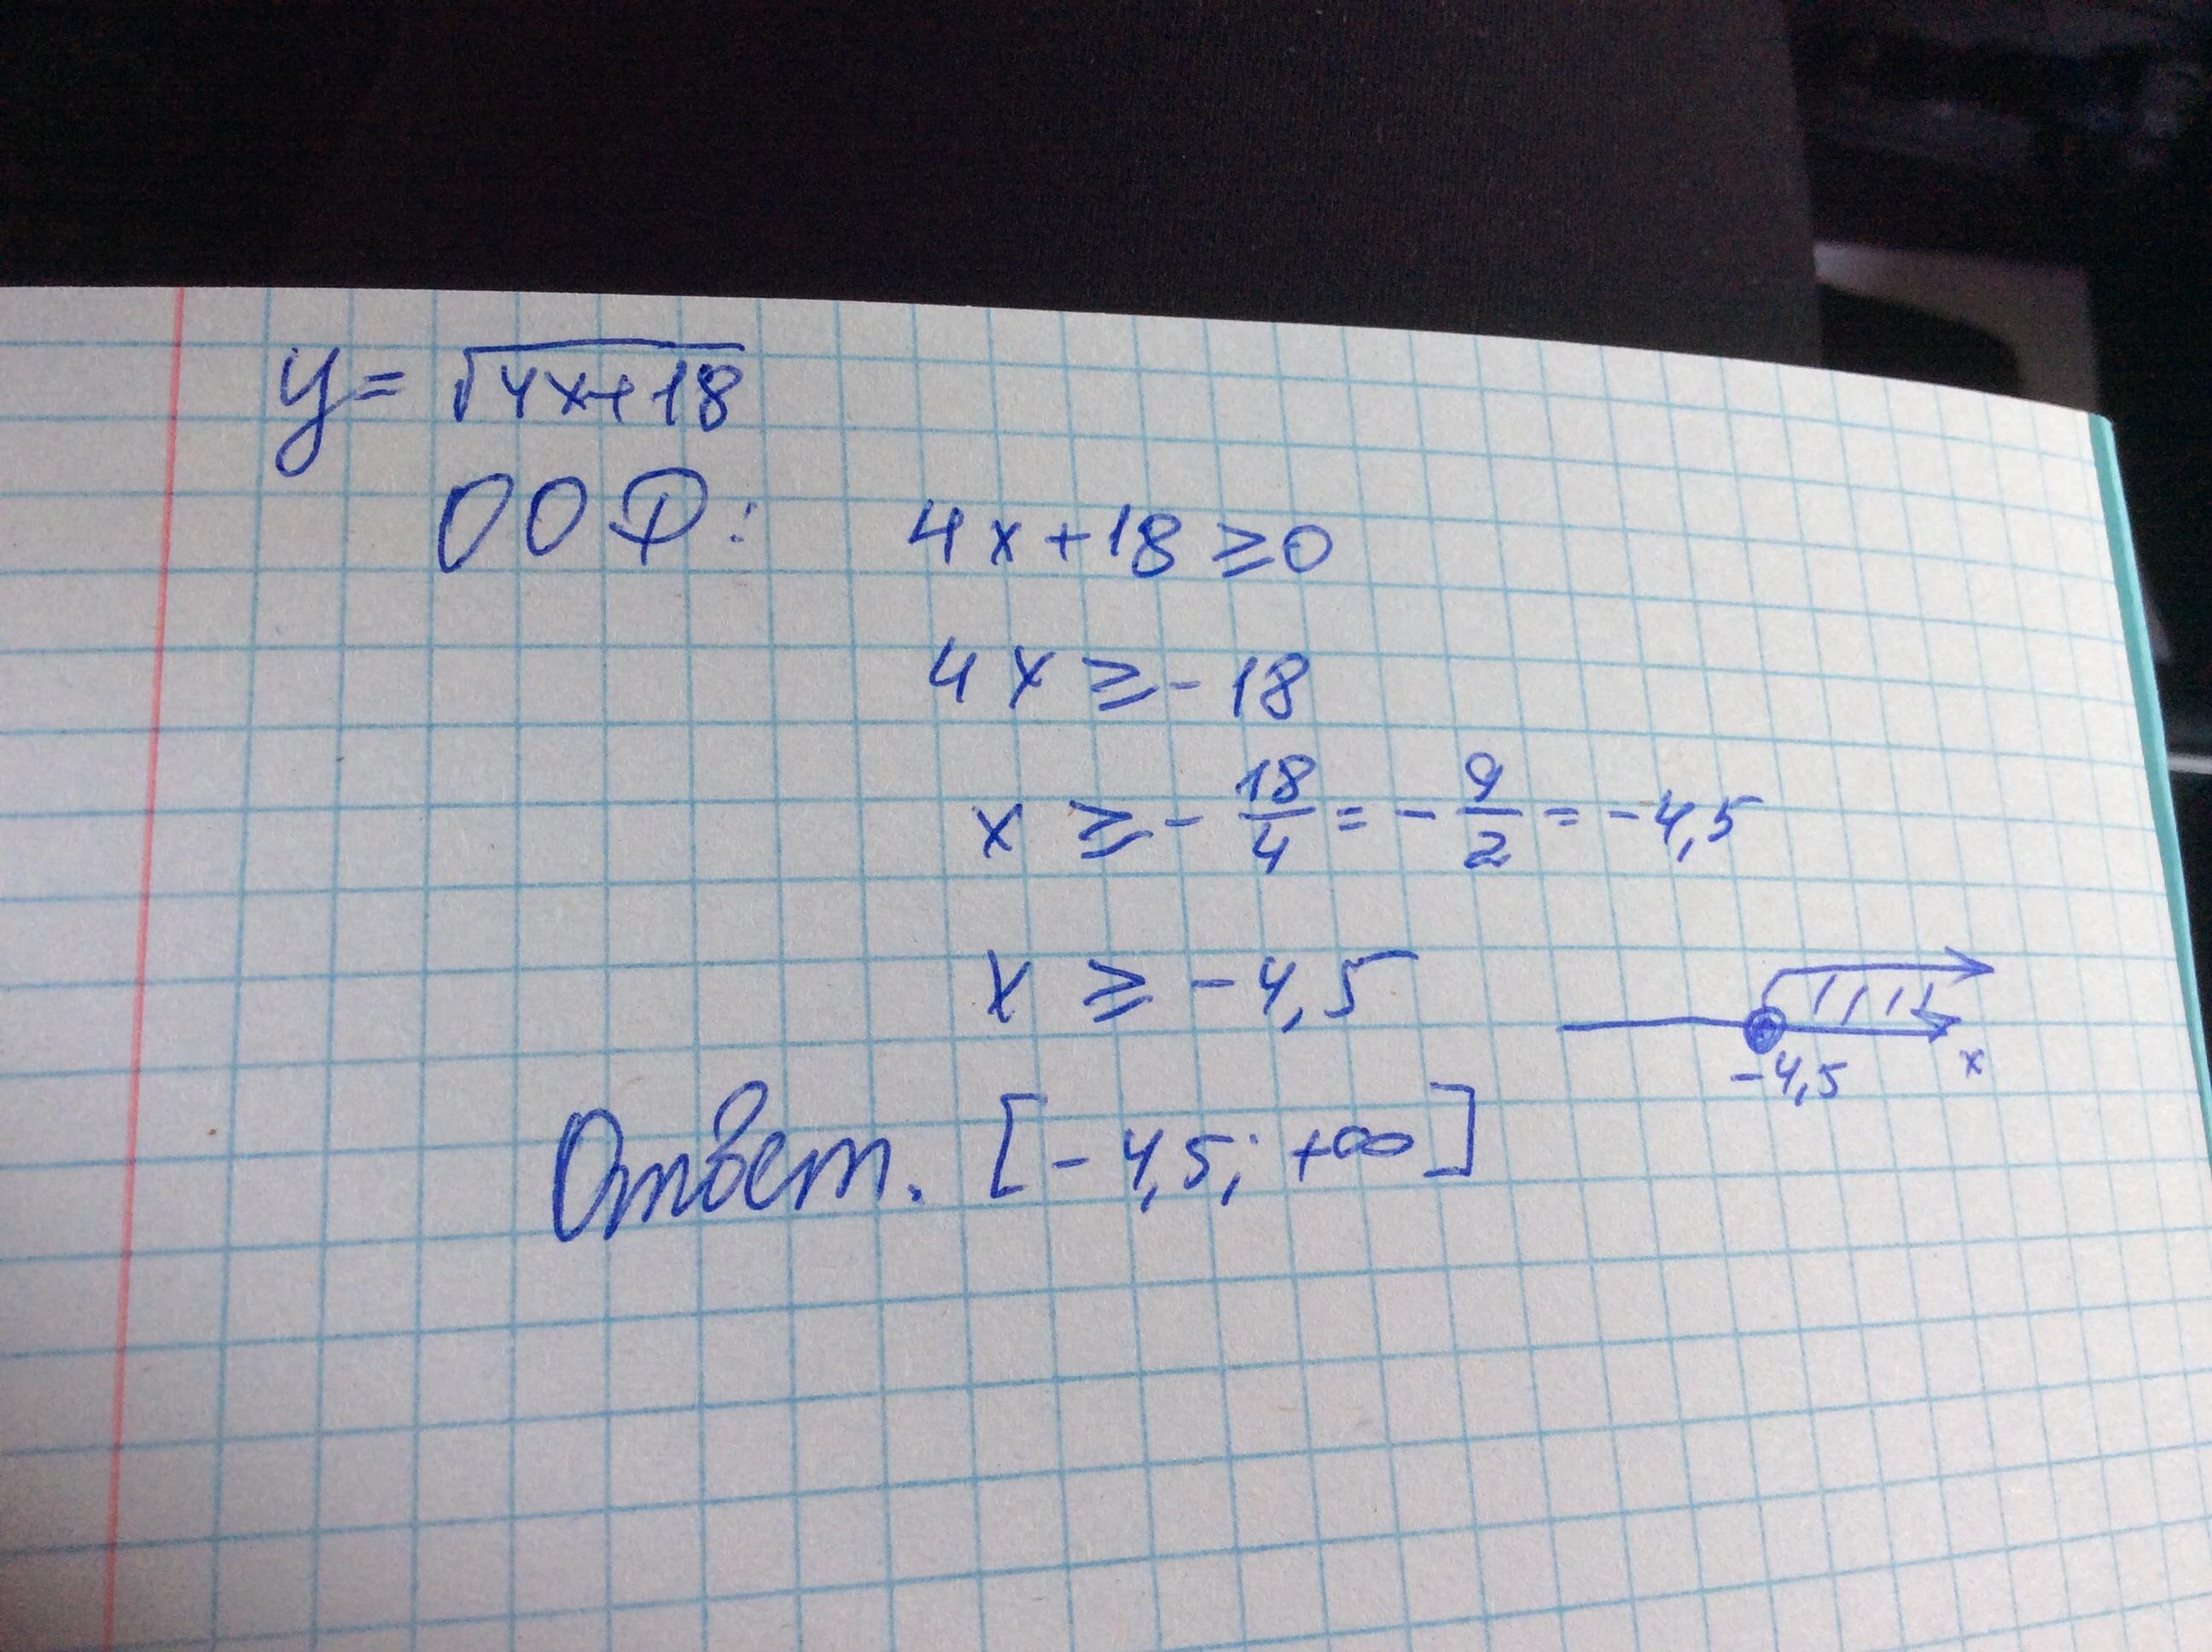 y = √4x+18
ООФ: 4x+18 ≥ 0
4x ≥ - 18
x ≥ - 18/4 = - 9/2 = -4,5
x ≥ -4,5
-4,5 x
Ответ. [-4,5; +∞]